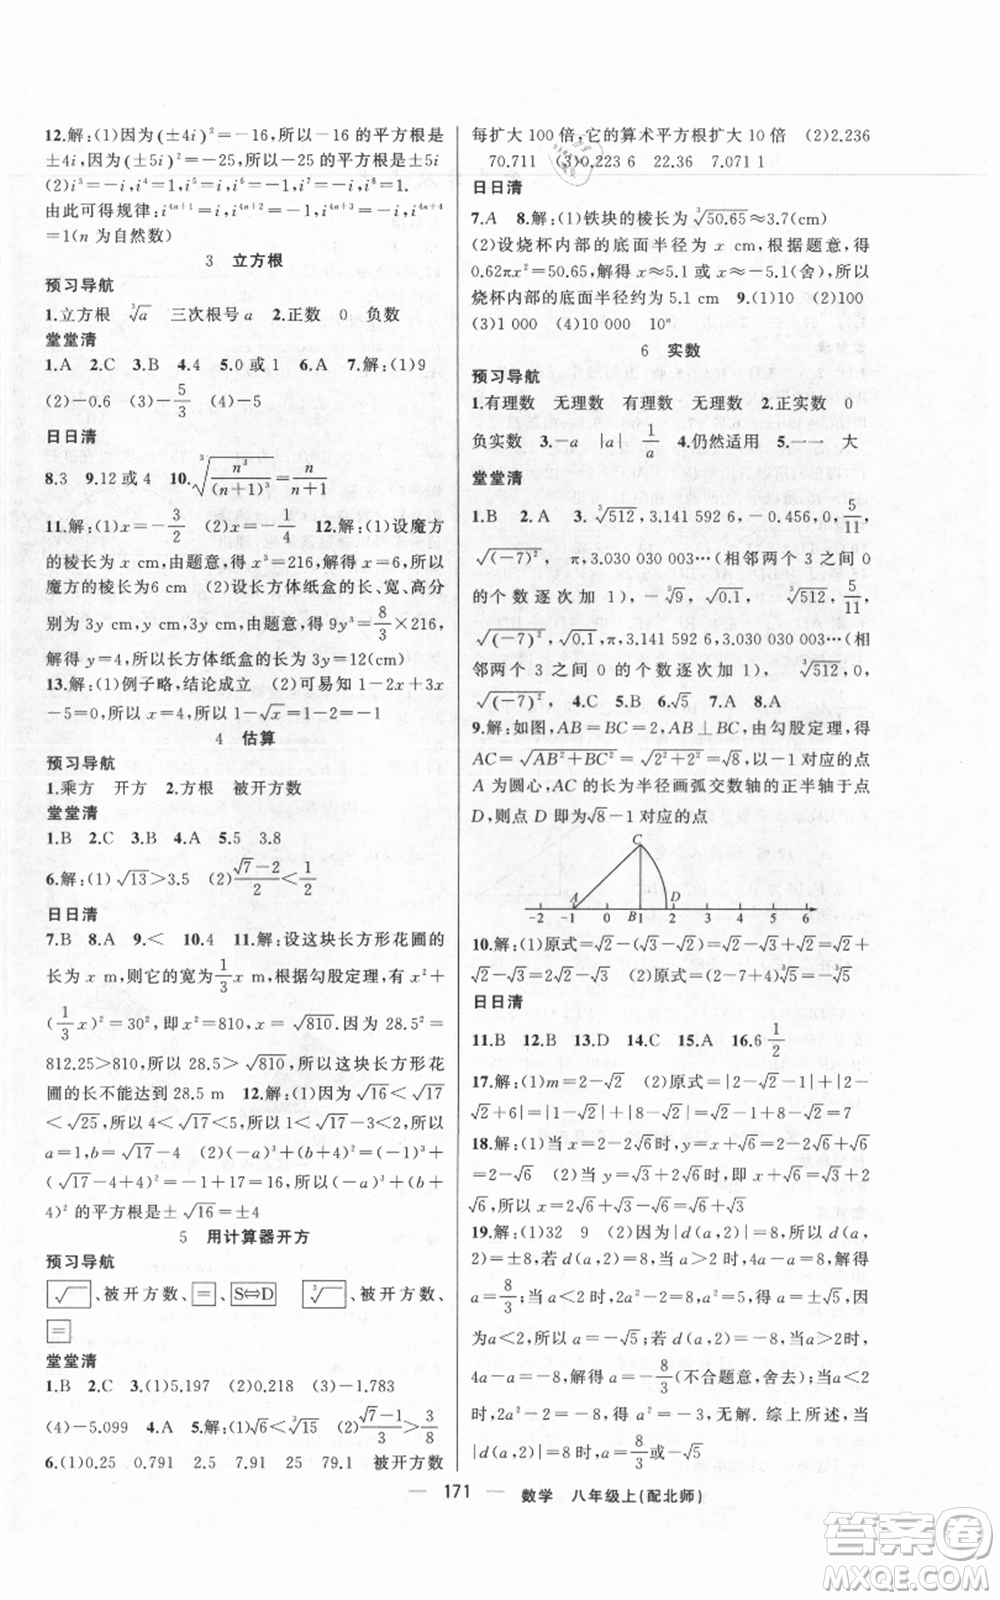 12.解:(1)因为(±4i)²=-16,所以-16的平方根是
±4i,因为(±5i)²=-25,所以-25的平方根是±5i
(2)i³=-i,i⁴=1,i⁵=i,i⁶=-1,i⁷=-i,i⁸=1.
由此可得规律:i⁴ⁿ⁺¹=i,i⁴ⁿ⁺²=-1,i⁴ⁿ⁺³=-i,i⁴ⁿ⁺⁴
=1(n为自然数)
3 立方根
预习导航
1.立方根 ∛a 三次根号a 2.正数 0 负数
堂堂清
1.A 2.C 3.B 4.4 5.0或1 6.A 7.解:(1)9
(2)-0.6 (3)-5/3 (4)-5
日日清
8.3 9.12或4 10.∛(n³/(n+1)³)=n/(n+1)
11.解:(1)x=-3/2 (2)x=-1/4 12.解:(1)设魔方
的棱长为x cm,由题意,得x³=216,解得x=6,所以
魔方的棱长为6 cm (2)设长方体纸盒的长、宽、高分
别为3y cm,y cm,3y cm,由题意,得9y³=8/3×216,
解得y=4,所以长方体纸盒的长为3y=12(cm)
13.解:(1)例子略,结论成立 (2)可易知1-2x+3x
-5=0,所以x=4,所以1-√x=1-2=-1
4 估算
预习导航
1.乘方 开方 2.方根 被开方数
堂堂清
1.B 2.C 3.B 4.A 5.5 3.8
6.解:(1)√13>3.5 (2)(√7-2)/2<1/2
日日清
7.B 8.A 9.< 10.4 11.解:设这块长方形花圃的
长为x m,则它的宽为1/3x m,根据勾股定理,有x²+
(1/3x)²=30²,即x²=810,x=√810.因为28.5²=
812.25>810,所以28.5>√810,所以这块长方形花
圃的长不能达到28.5 m 12.解:(1)因为√16<√17
<√25,所以4<√17<5,所以1<√17-3<2,所以
a=1,b=√17-4 (2)(-a)³+(b+4)²=(-1)³+
(√17-4+4)²=-1+17=16,所以(-a)³+(b+
4)²的平方根是±√16=±4
5 用计算器开方
预习导航
√ 、被开方数、=、S⇔D ∛ 、被开方数、
=
堂堂清
1.B 2.C 3.(1)5.197 (2)0.218 (3)-1.783
(4)-5.099 4.A 5.解:(1)√6<∛15 (2)(√7-1)/3>3/8
6.(1)0.25 0.791 2.5 7.91 25 79.1 被开方数
每扩大100倍,它的算术平方根扩大10倍 (2)2.236
70.711 (3)0.223 6 22.36 7.071 1
日日清
7.A 8.解:(1)铁块的棱长为∛50.65≈3.7(cm)
(2)设烧杯内部的底面半径为x cm,根据题意,得
0.62πx²=50.65,解得x≈5.1或x≈-5.1(舍),所以
烧杯内部的底面半径约为5.1 cm 9.(1)10 (2)100
(3)1 000 10ⁿ
6 实数
预习导航
1.有理数 无理数 有理数 无理数 2.正实数 0
负实数 3.-a |a| 1/a 4.仍然适用 5.一一 大
堂堂清
1.B 2.A 3.∛512,3.141 592 6,-0.456,0,5/11,
√(-7)² √,π,3.030 030 003…(相邻两个3之间0
的个数逐次加1),-∛9,√0.9 ∛512,0,5/11,
√(-7)² √0.9,π,3.141 592 6,3.030 030 003…(相
邻两个3之间0的个数逐次加1), ∛512,
√(-7)² 4.C 5.B 6.√5 7.A 8.A
9.解:如图,AB=BC=2,AB⊥BC,由勾股定理,得
AC=√AB²+BC²=√2²+2²=√8.以-1对应的点
A为圆心,AC的长为半径画弧交数轴的正半轴于点
D,则点D即为√8-1对应的点
C
A D
-2 -1 0 B1 2 3 4 5 6
10.解:(1)原式=√2-(√2-1)=√2-√2+1=√2
-√2+1=1 (2)原式=(2-7+4)∛5=-∛5
日日清
11.B 12.B 13.D 14.C 15.A 16.6 1/2
17.解:(1)m=2-√2 (2)原式=|2-√2-1|+|2-
√2+√2+6|=|1-√2|+8=√2-1+8=√2+7
18.解:(1)当x=2-2√6时,y=x+√6=2-2√6+√6
=2-√6 (2)当x=√6时,y=x-√6=√6-√6=0
19.解:(1)32 9 (2)因为|d(a,2)|=8,所以d(a,2)
=±8,若d(a,2)=8,当a>2时,4a-a=8,解得a=
8/3;当a<2时,2a²-2=8,解得a=±√5,因
为a<2,所以a=-√5;若d(a,2)=-8,当a>2时,
4a-a=-8,解得a=-8/3(不合题意,舍去);当a<2
时,2a²-2=-8,即2a²=-6,无解.综上所述,当
|d(a,2)|=8时,a=8/3或-√5
171
数学 八年级上(配北师)
答案卷
MXQE.COM